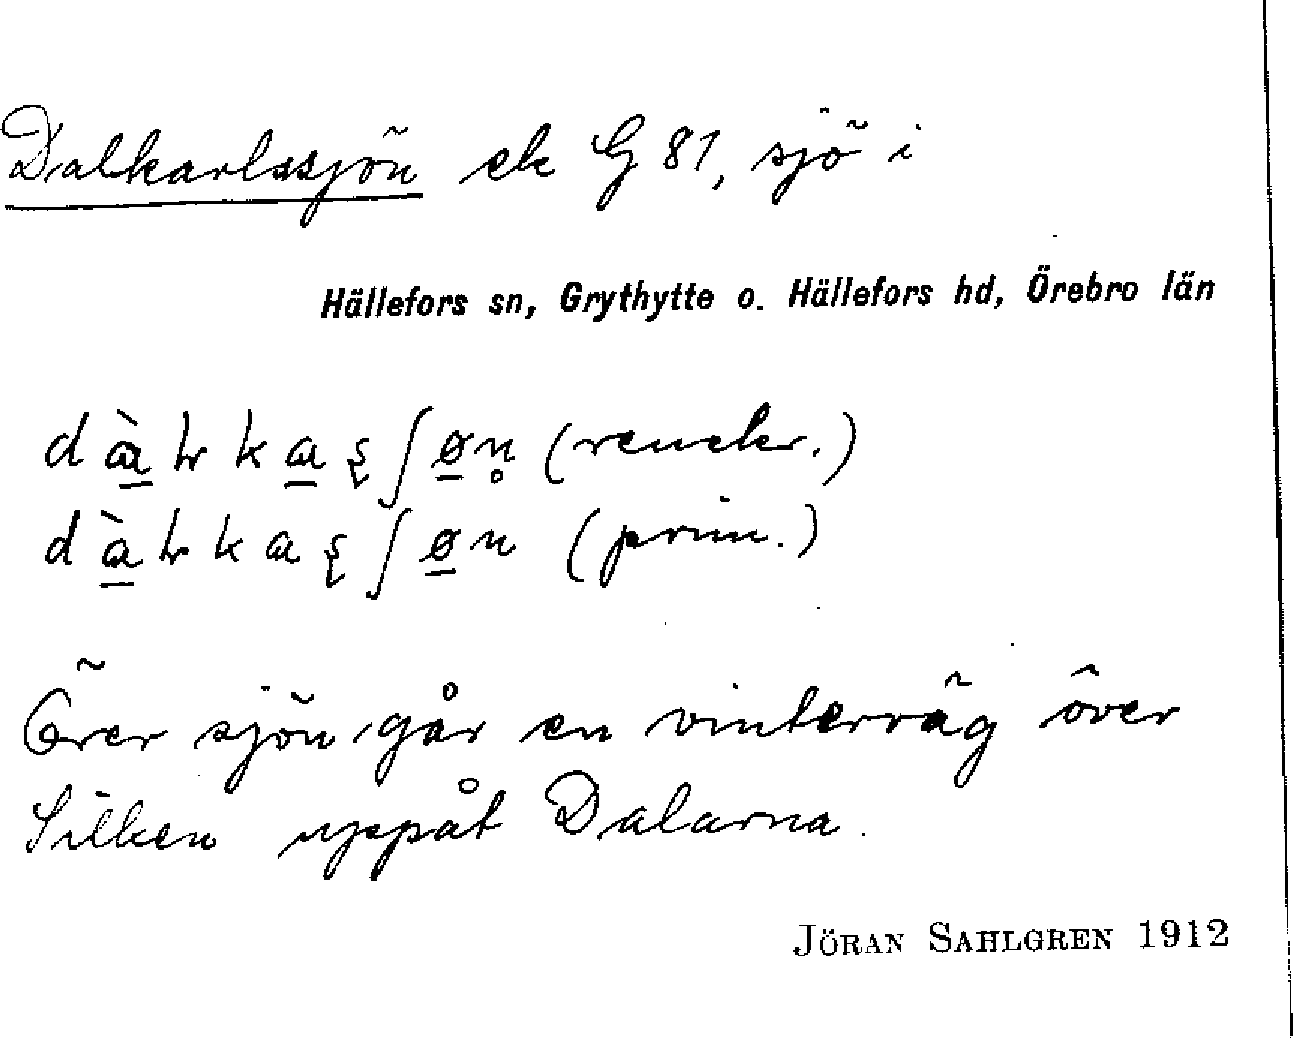 Dalkarlssjön ek G 81, sjö i
Hällefors sn, Grythytte o. Hällefors hd, Örebro län
dàłkaʂʃøn̥
dàłkaʂʃøn (prim.)
Över sjön går en vinterväg över
Silken uppåt Dalarna.
JÖRAN SAHLGREN 1912